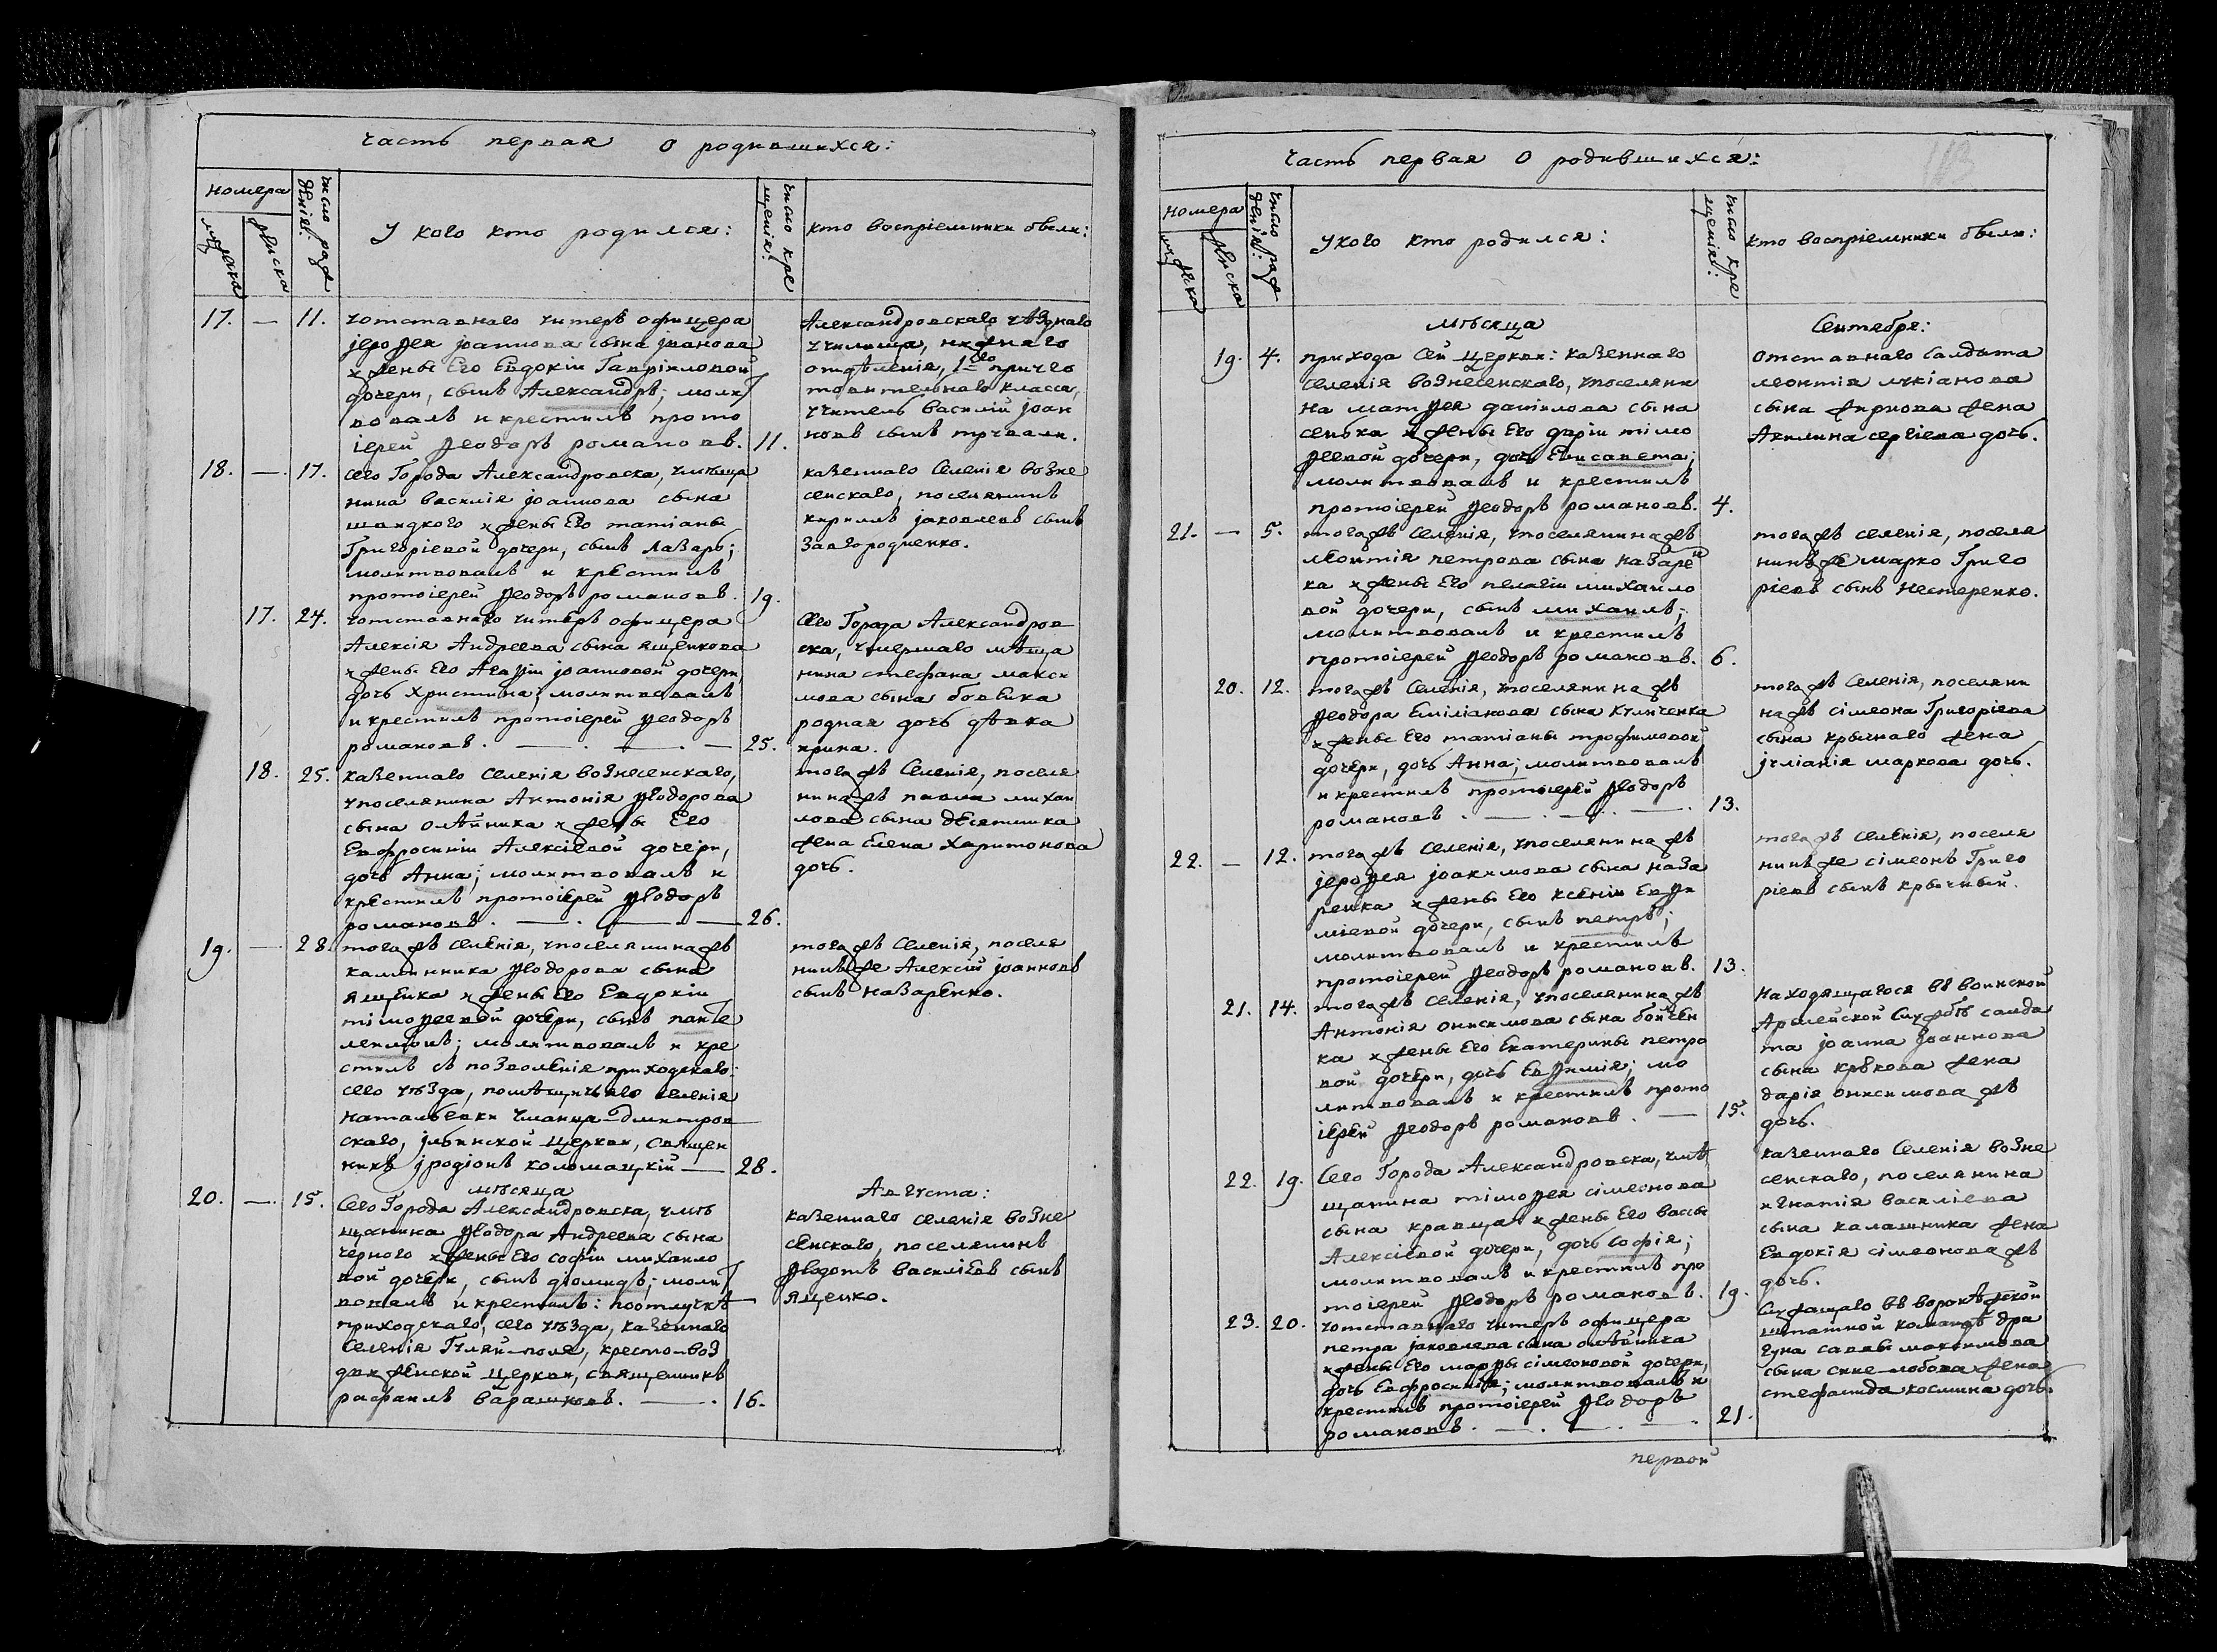 Часть первая О родившихся:
номера
мужеска
женска
число рож
денія:
У кого кто родился:
число кре
щенія:
кто воспріемники были:
17. — 11. у отставнаго унтеръ офицера
іероѳея іоаннова сына іванова
и жены Его Евдокіи Гавріиловой
дочери, сынъ Александръ; молит
вовалъ и крестилъ прото
іерей Ѳеодоръ романовъ. 11.
Александровскаго уѣзднаго
училища, нижняго
отдѣленія, 1го приуго
товительнаго класса,
учитель василій іоан
новъ сынъ
18. — 17. сего Города Александровска, у мѣща
нина василія іоаннова сына
и жены Его татіаны
Григоріевой дочери, сынъ Лазарь;
молитвовалъ и крестилъ
протоіерей Ѳеодоръ романовъ. 19.
казеннаго Селенія возне
сенскаго, поселянинъ
кирилъ іаковлевъ сынъ
Завгородненко.
17. 24. у отставнаго унтеръ офицера
Алексія Андреева сына ященкова
и жены Его Агаѳіи іоанновой дочери,
дочь христина; молитвовалъ
и крестилъ протоіерей Ѳеодоръ
романовъ. — . — . — 25.
сего Города Александров
ска, умершаго мѣща
нина стефана макси
мова сына
родная дочь дѣвка
ирина.
18. 25. казеннаго селенія вознесенскаго,
у поселянина Антонія Ѳеодорова
сына олѣйника и жены Его
Евфросиніи Алексіевой дочери,
дочь Анна; молитвовалъ и
крестилъ протоіерей Ѳеодоръ
романовъ. — . — 26.
тогожъ Селенія, поселя
нинажъ павла михаи
лова сына десятника
жена Елена Харитонова
дочь.
19. — 28. тогожъ селенія, у поселянинажъ
каллинника Ѳеодорова сына
ященка и жены Его Евдокіи
тімоѳеевой дочери, сынъ панте
леимонъ; молитвовалъ и кре
стилъ съ позволенія приходскаго:
сего уѣзда, помѣщичьяго селенія
натальевки уманца-дмитров
скаго, ільинской Церкви, священ
никъ іродіонъ коломацкій — 28.
тогожъ Селенія, поселя
нинъже Алексій іоанновъ
сынъ назаренко.
мѣсяца Августа:
20. — 15. Сего Города Александровска, у мѣ
щанина Ѳеодора Андреева сына
чернаго и жены Его софіи михаило
вой дочери, сынъ діомидъ; молит
вовалъ и крестилъ: по отлучкѣ
приходскаго, сего уѣзда, казеннаго
селенія Гуляй-поля, кресто-воз
движенской Церкви, священникъ
рафаилъ варашковъ. — . 16.
казеннаго селенія возне
сенскаго, поселянинъ
Ѳеодотъ василіевъ сынъ
ященко.
Часть первая О родившихся:
113
номера
мужеска
женска
число рож
денія:
У кого кто родился:
число кре
щенія:
кто воспріемники были:
мѣсяца Сентября:
19. 4. прихода сей Церкви: казеннаго
селенія вознесенскаго, у поселяни
на матѳея даніилова сына
сенька и жены Его даріи тімо
ѳеевой дочери, дочь Елисавета;
молитвовалъ и крестилъ
протоіерей Ѳеодоръ романовъ. 4.
Отставнаго Салдата
леонтія лукіанова
сына жирнова жена
Акилина сергіева дочь.
21. — 5. тогожъ селенія, у поселянинажъ
леонтія петрова сына назарен
ка и жены Его пелагіи михаило
вой дочери, сынъ михаилъ;
молитвовалъ и крестилъ
протоіерей Ѳеодоръ романовъ. 6.
тогожъ селенія, поселя
нинъже марко Григо
ріевъ сынъ Нестеренко.
20. 12. тогожъ Селенія, у поселянинажъ
Ѳеодора Емиліанова сына куличенка
и жены Его татіаны трофимовой
дочери, дочь Анна; молитвовалъ
и крестилъ протоіерей Ѳеодоръ
романовъ . — . — . — . 13.
тогожъ Селенія, поселяни
нажъ сімеона Григоріева
сына крычнаго жена
іуліанія маркова дочь.
22. — 12. тогожъ Селенія, у поселянинажъ
іероѳея іоакимова сына наза
ренка и жены Его ксеніи Евѳи
міевой дочери, сынъ петръ;
молитвовалъ и крестилъ
протоіерей Ѳеодоръ романовъ. 13.
тогожъ селенія, поселя
нинъже сімеонъ Григо
ріевъ сынъ крычный.
21. 14. тогожъ селенія, у поселянинажъ
Антонія онисимова сына бойчен
ка и жены Его Екатерины петро
вой дочери, дочь Евѳимія; мо
литвовалъ и крестилъ прото
іерей Ѳеодоръ романовъ. — 15.
находящагося въ воинской
Армейской службѣ салда
та іоанна іоаннова
сына крюкова жена
дарія онисимова жъ
дочь.
22. 19. Сего Города Александровска, у мѣ
щанина тімоѳея сімеонова
сына кравца и жены Его вассы
Алексіевой дочери, дочь софія;
молитвовалъ и крестилъ про
тоіерей Ѳеодоръ романовъ. 19.
казеннаго Селенія возне
сенскаго, поселянина
игнатія василіева
сына калашника жена
Евдокія сімеонова жъ
дочь.
23. 20. у отставнаго унтеръ офицера
петра іаковлева сына олѣйника
и жены Его марѳы сімеоновой дочери,
дочь Евфросинія; молитвовалъ и
крестилъ протоіерей Ѳеодоръ
романовъ. — . — . — . 21.
Служащаго въ
штатной командѣ дра
гуна саввы максимова
сына жена
стефанида космина дочь.
первой